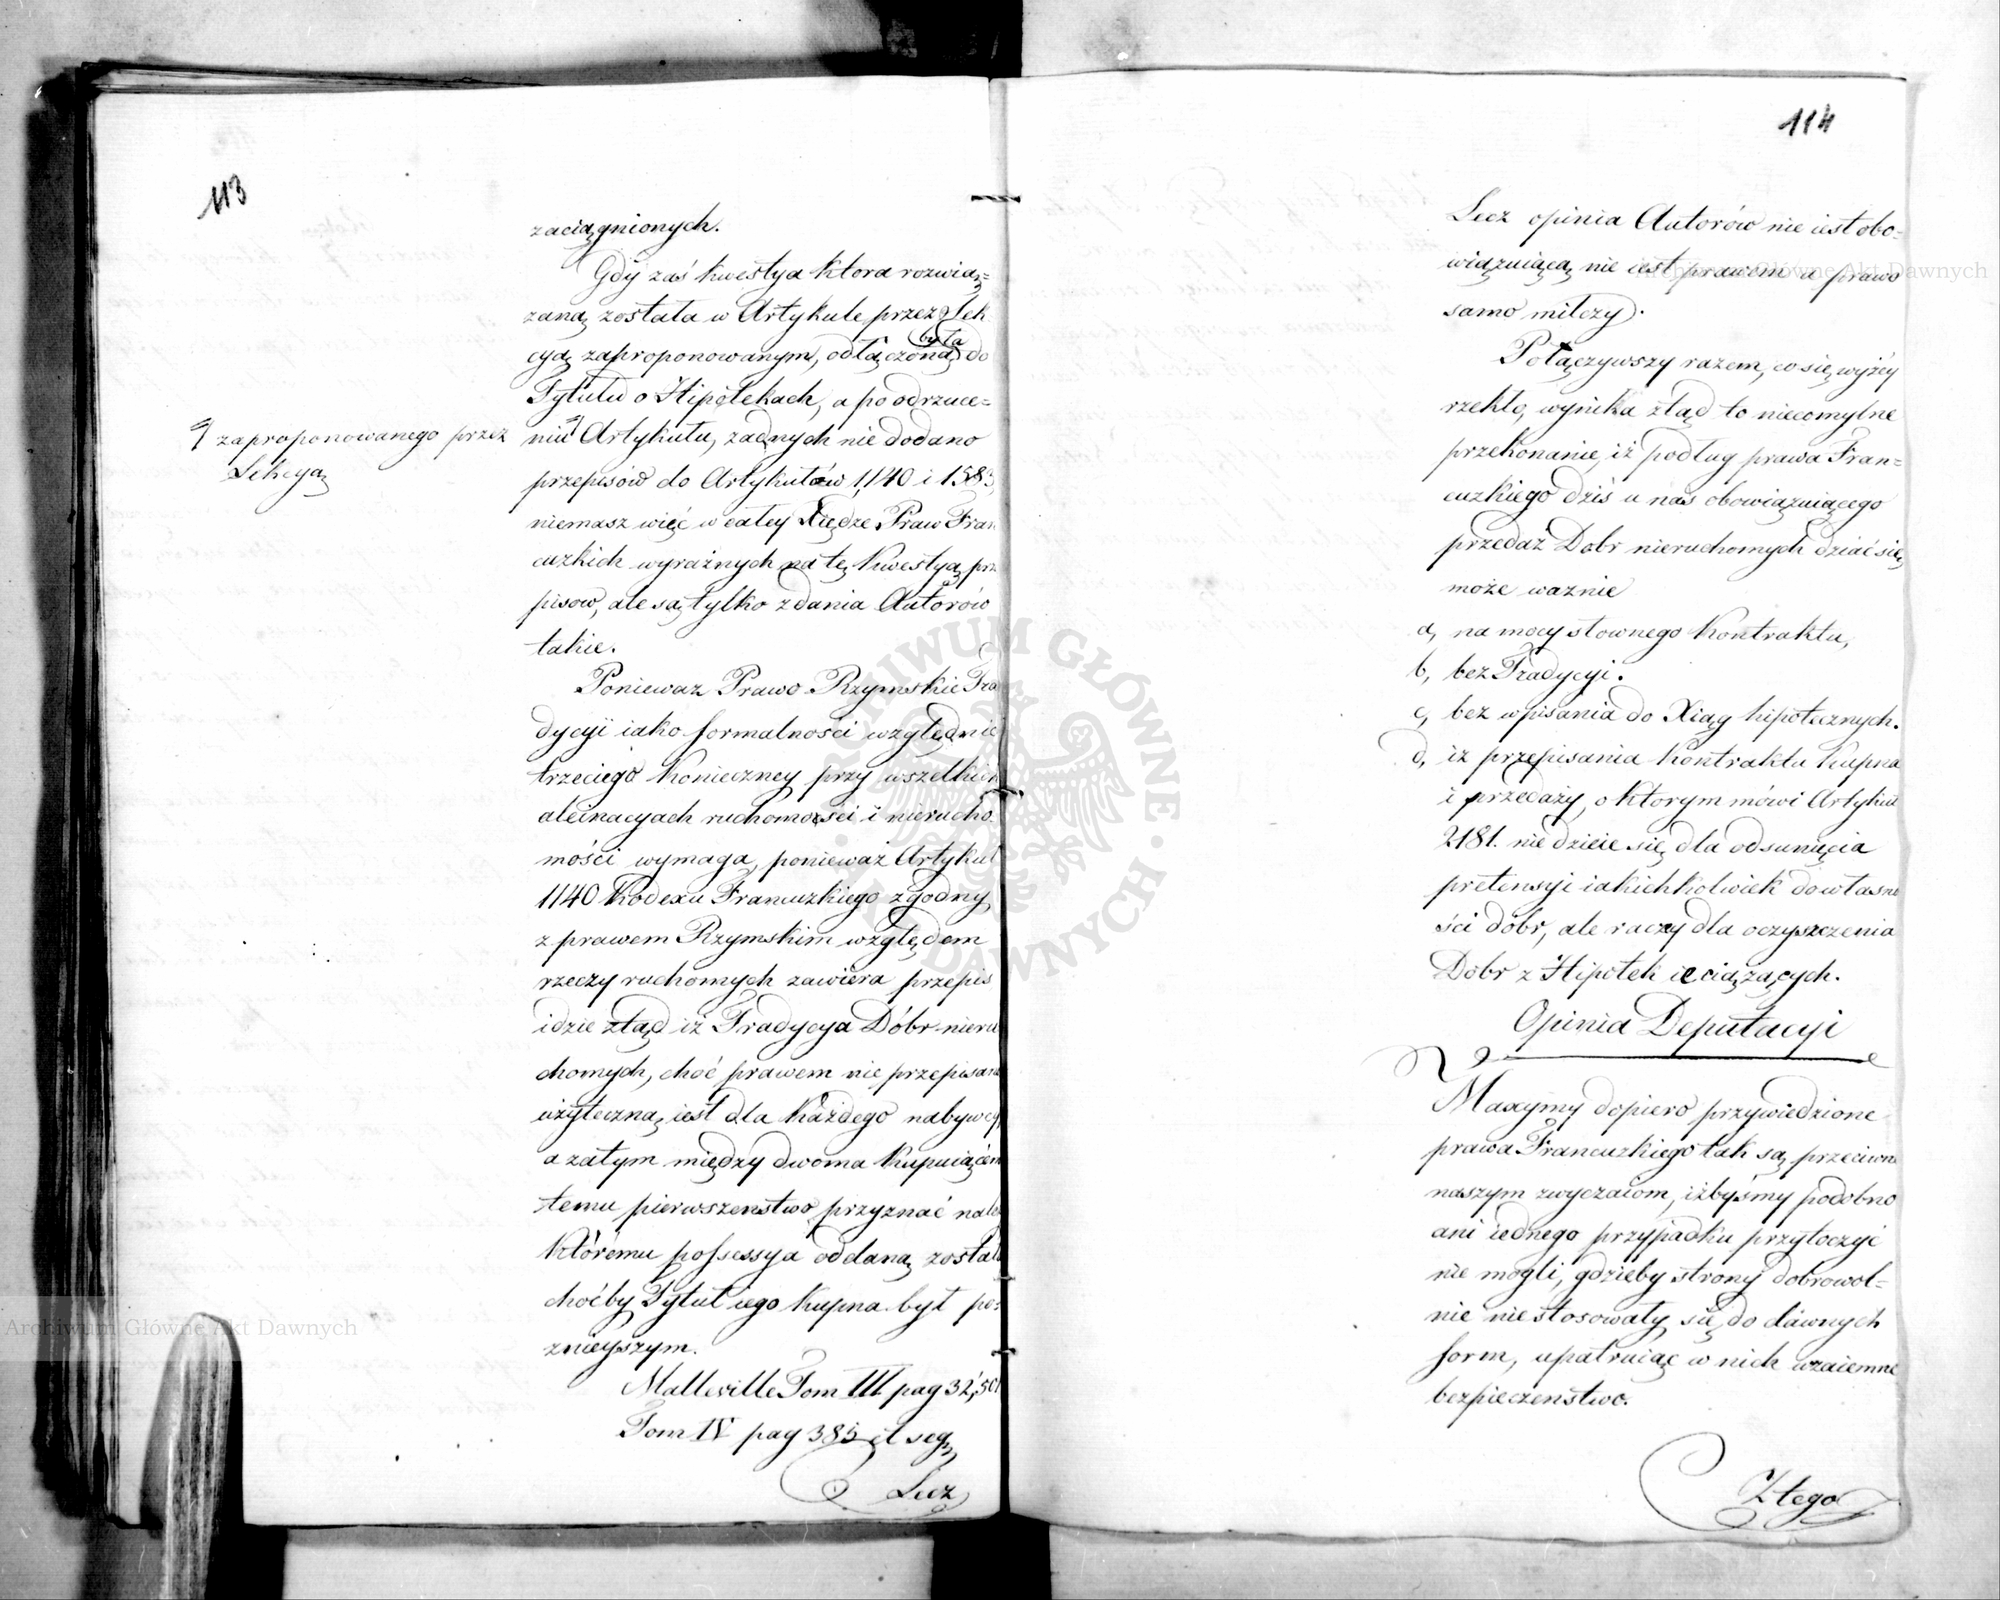 113
zaciągnionych.
Gdy zaś kwestya ktora rozwią=
zaną została w Artykule przez Sek
cyą zaproponowanym, odłączoną była do
Tytułu o Hipotekach, a po odrzuce=
niu Artykułu, żadnych nie dodano
zaproponowanego przez
Sekcyą
przepisów do Artykułów 1140 i 1583
niemasz więc w całey Xiędze Praw Fran
cuzkich wyraźnych na tę kwestyą prze
pisow, ale są tylko zdania Autorów
takie.
Ponieważ Prawo Rzymskie Tra
dycyi iako formalności względnie
trzeciego konieczney przy wszelkich
alienacyach ruchomości i nierucho
mości wymaga, ponieważ Artykuł
1140 Kodexu Francuzkiego zgodny
z prawem Rzymskim względem
rzeczy ruchomych zawiera przepis
idzie ztąd iż Tradycya Dóbr nieru
chomych, choć prawem nie przepisana
użyteczną iest dla każdego nabywcy
a zatym między dwoma kupuiącem
temu pierwszenstwo przyznać nale
któremu possessya oddaną został
choćby Tytuł iego kupna był po
znieyszym.
Malleville Tom III pag 32, 501
Tom IV pag 385 et seq
Lecz
114
Lecz opinia Autorów nie iest obo=
wiązuiącą, nie iest prawem a prawo
samo milczy.
Połączywszy razem, co się wyżey
rzekło, wynika ztąd to nieomylne
przekonanie, iż podług prawa Fran=
cuzkiego dziś u nas obowiązuiącego
przedaż Dobr nieruchomych dziać się
może ważnie
a, na mocy słownego Kontraktu,
b, bez Tradycyi.
c, bez wpisania do Xiąg hipotecznych.
d, iż przepisania Kontraktu Kupna
i przedaży, o ktorym mówi Artykuł
2181. nie dzieie się dla odsunięcia
pretensyi iakichkolwiek do własno
ści dóbr, ale raczy dla oczyszczenia
Dóbr z Hipotek ie ciążących.
Opinia Deputacyi
Maxymy dopiero przywiedzione
prawa Francuzkiego tak są przeciwne
naszym zwyczaiom, iżbyśmy podobno
ani iednego przypadku przytoczyć
nie mogli, gdzieby strony dobrowol=
nie nie stosowały się do dawnych
form, upatruiąc w nich wzaiemne
bezpieczenstwo.
Z tego
ARCHIWUM GŁÓWNE AKT DAWNYCH
Archiwum Główne Akt Dawnych
Archiwum Główne Akt Dawnych